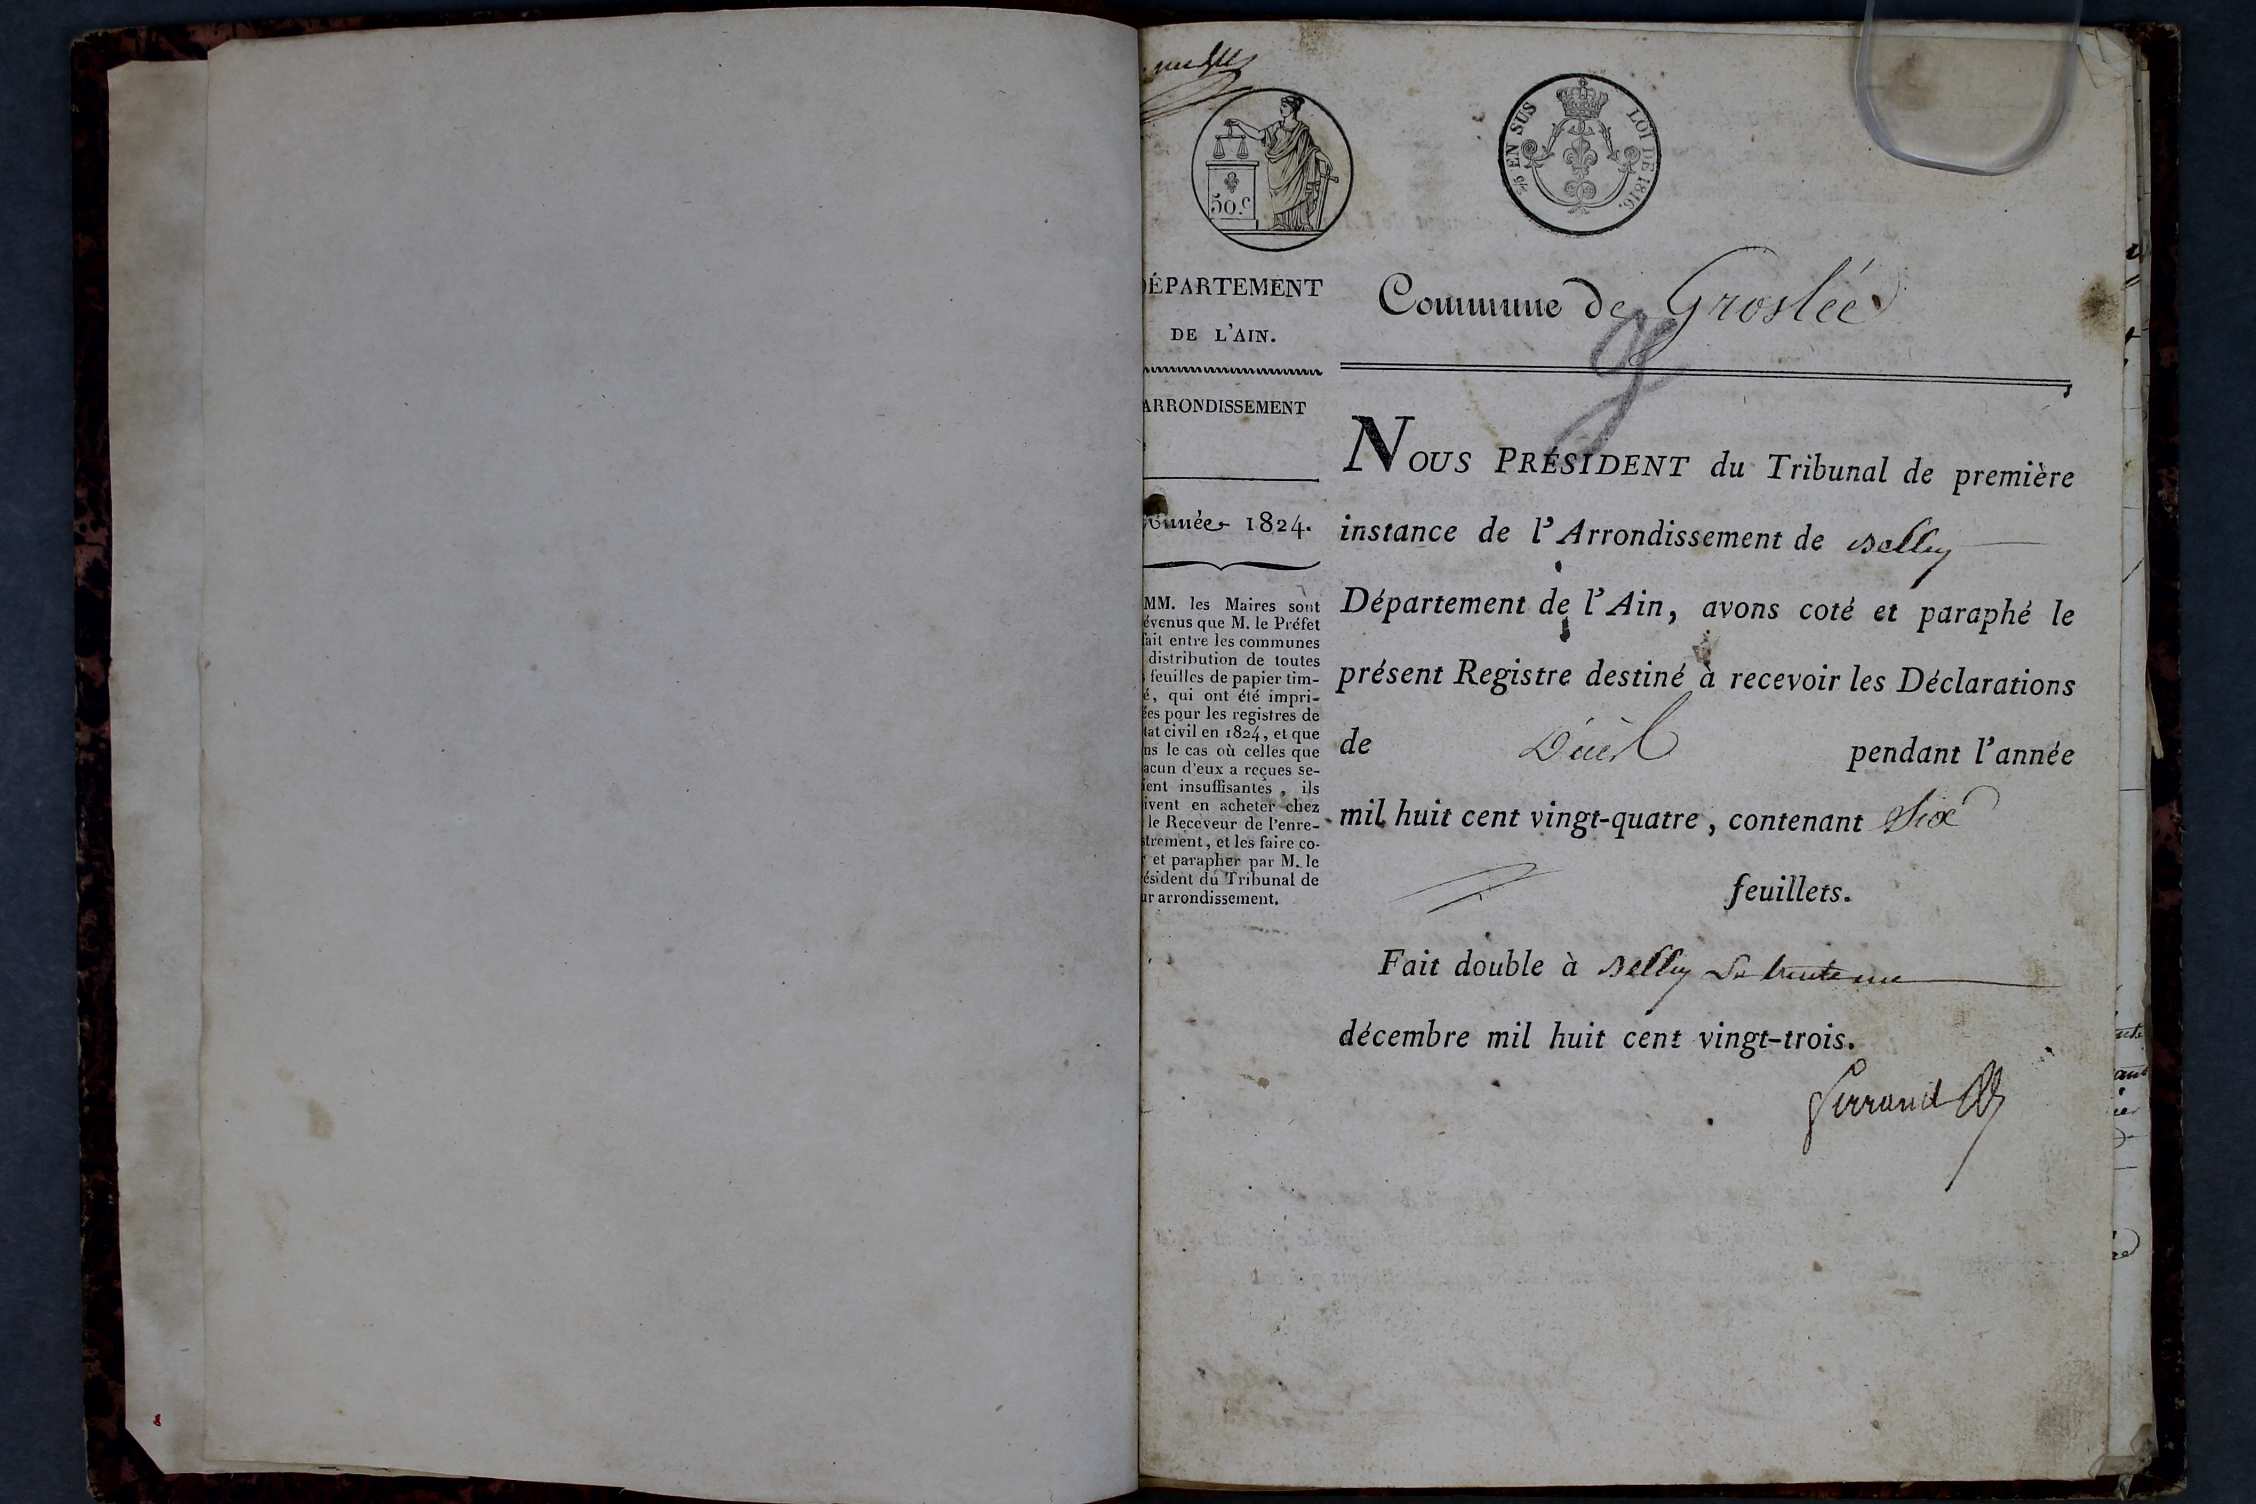 50.c
2/5 EN SUS
LOI DE 1816.
DÉPARTEMENT
DE L'AIN.
ARRONDISSEMENT
Année 1824.
MM. les Maires sont
évenus que M. le Préfet
fait entre les communes
distribution de toutes
feuilles de papier tim-
é, qui ont été impri-
ées pour les registres de
tat civil en 1824, et que
ns le cas où celles que
acun d'eux a reçues se-
ient insuffisantes, ils
ivent en acheter chez
le Receveur de l'enre-
strement, et les faire co-
et parapher par M. le
ésident du Tribunal de
ur arrondissement.
Commune de Groslée
NOUS PRÉSIDENT du Tribunal de première
instance de l'Arrondissement de Belley
Département de l'Ain, avons coté et paraphé le
présent Registre destiné à recevoir les Déclarations
de Décès pendant l'année
mil huit cent vingt-quatre, contenant Six
feuillets.
Fait double à Belley Le trente un
décembre mil huit cent vingt-trois.